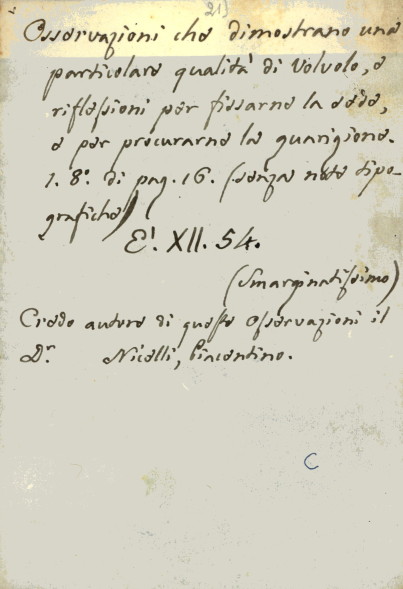 21)
Osservazioni che dimostrano una
particolare qualità di Volvolo, e
riflessioni per fissarne la sede,
e per procurarne la guarigione.
1. 8°. di pag. 16. (senza note tipo-
grafiche)
E'. XII. 54.
(Smarginatissimo)
Credo autore di queste Osservazioni il
Dr. Nicelli, Piacentino.
C